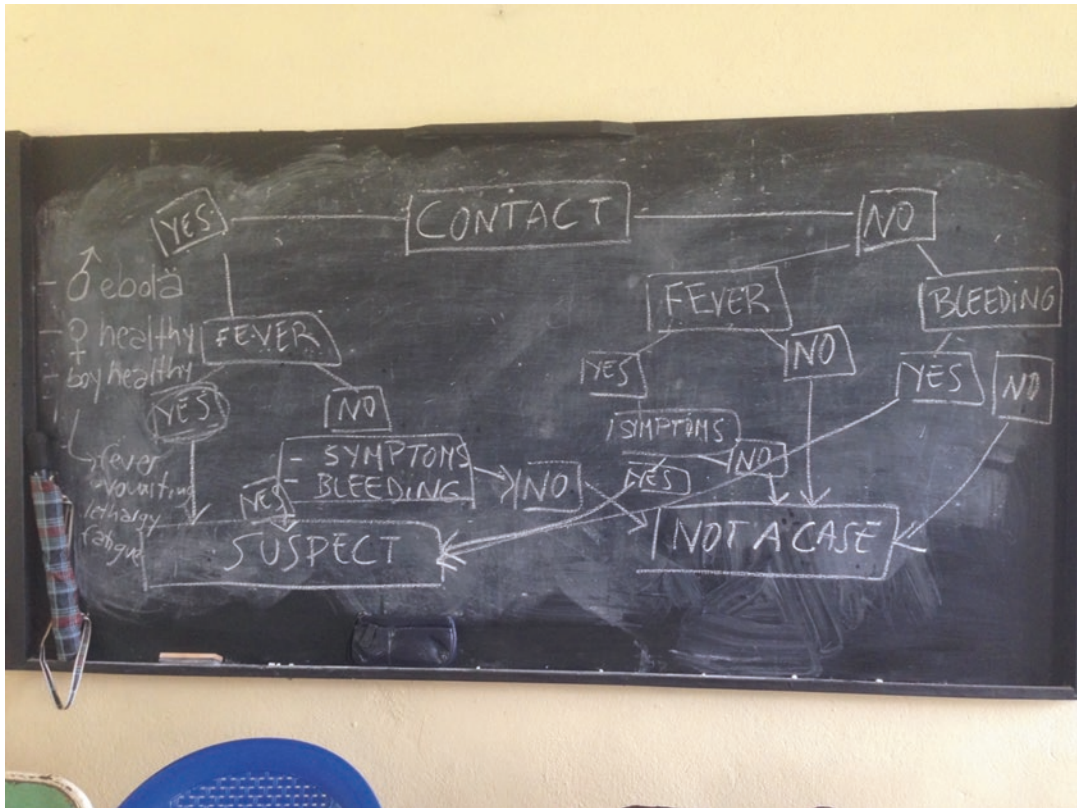 YES CONTACT NO
♂ ebola
♀ healthy
boy healthy
fever
vomiting
lethargy
fatigue
FEVER
YES
NO
- SYMPTOMS
- BLEEDING
YES
NO
SUSPECT
FEVER
YES
NO
SYMPTOMS
YES
NO
BLEEDING
YES
NO
NOT A CASE